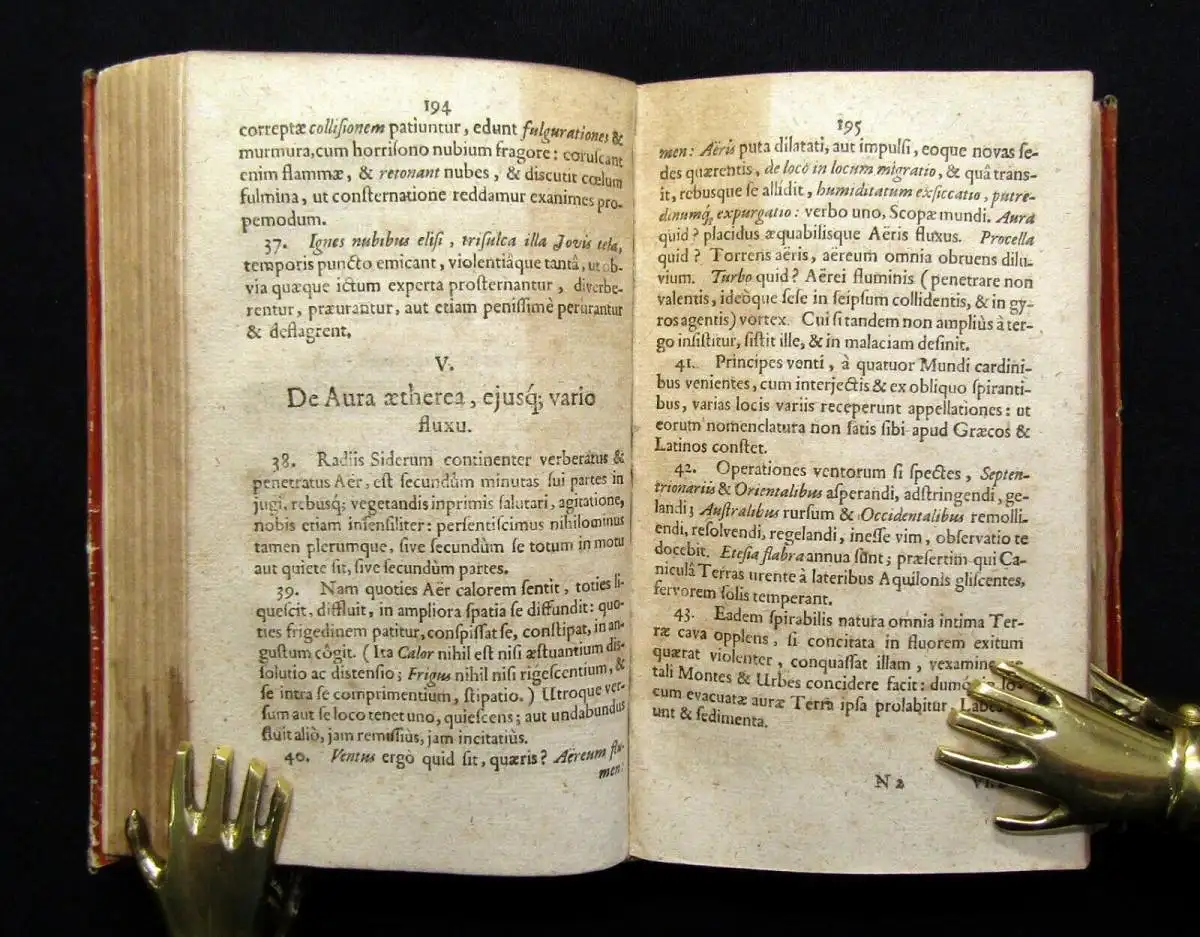 194
correptæ colliſionem patiuntur, edunt fulgurationes &
murmura, cum horriſono nubium fragore: coruſcant
enim flammæ, & retonant nubes, & diſcutit cœlum
fulmina, ut conſternatione reddamur exanimes pro-
pemodum.
37. Ignes nubibus eliſi, triſulca illa Jovis tela,
temporis puncto emicant, violentiâque tantâ, ut ob-
via quæque ictum experta proſternantur, diverbe-
rentur, præurantur, aut etiam peniſſimè perurantur
& deflagrent.
V.
De Aura ætherea, ejuſq; vario
fluxu.
38. Radiis Siderum continenter verberatus &
penetratus Aër, eſt ſecundùm minutas ſui partes in
jugi, rebuſq; vegetandis inprimis ſalutari, agitatione,
nobis etiam inſenſiliter: perſentiſcimus nihilominus
tamen plerumque, ſive ſecundùm ſe totum in motu
aut quiete ſit, ſive ſecundùm partes.
39. Nam quoties Aër calorem ſentit, toties li-
queſcit, diffluit, in ampliora ſpatia ſe diffundit: quo-
ties frigedinem patitur, conſpiſſat ſe, conſtipat, in an-
guſtum côgit. (Ita Calor nihil eſt niſi æſtuantium diſ-
ſolutio ac diſtenſio; Frigus nihil niſi rigeſcentium, &
ſe intra ſe comprimentium, ſtipatio.) Utroque ver-
ſum aut ſe loco tenet uno, quieſcens; aut undabundus
fluit aliò, jam remiſſiùs, jam incitatiùs.
40. Ventus ergò quid ſit, quæris? Aëreum flu-
men:
195
men: Aëris puta dilatati, aut impulſi, eoque novas ſe-
des quærentis, de loco in locum migratio, & quâ trans-
it, rebusque ſe allidit, humiditatum exſiccatio, putre-
dinumq; expurgatio: verbo uno, Scopæ mundi. Aura
quid? placidus æquabilisque Aëris fluxus. Procella
quid? Torrens aëris, aëreum omnia obruens dilu-
vium. Turbo quid? Aërei fluminis (penetrare non
valentis, ideòque ſeſe in ſeipſum collidentis, & in gy-
ros agentis) vortex. Cui ſi tandem non ampliùs à ter-
go inſiſtitur, ſiſtit ille, & in malaciam deſinit.
41. Principes venti, à quatuor Mundi cardini-
bus venientes, cum interjectis & ex obliquo ſpiranti-
bus, varias locis variis receperunt appellationes: ut
eorum nomenclatura non ſatis ſibi apud Græcos &
Latinos conſtet.
42. Operationes ventorum ſi ſpectes, Septen-
trionariis & Orientalibus aſperandi, adſtringendi, ge-
landi; Auſtralibus rurſum & Occidentalibus remolli-
endi, reſolvendi, regelandi, ineſſe vim, obſervatio te
docebit. Eteſia flabra annua ſunt; præſertim qui Ca-
niculâ Terras urente à lateribus Aquilonis gliſcentes,
fervorem ſolis temperant.
43. Eadem ſpirabilis natura omnia intima Ter-
ræ cava opplens, ſi concitata in fluorem exitum
quærat violenter, conquaſſat illam, vexamine
tali Montes & Urbes concidere facit: dum
cum evacuatæ auræ Terra ipſa prolabitur,
unt & ſedimenta.
N 2